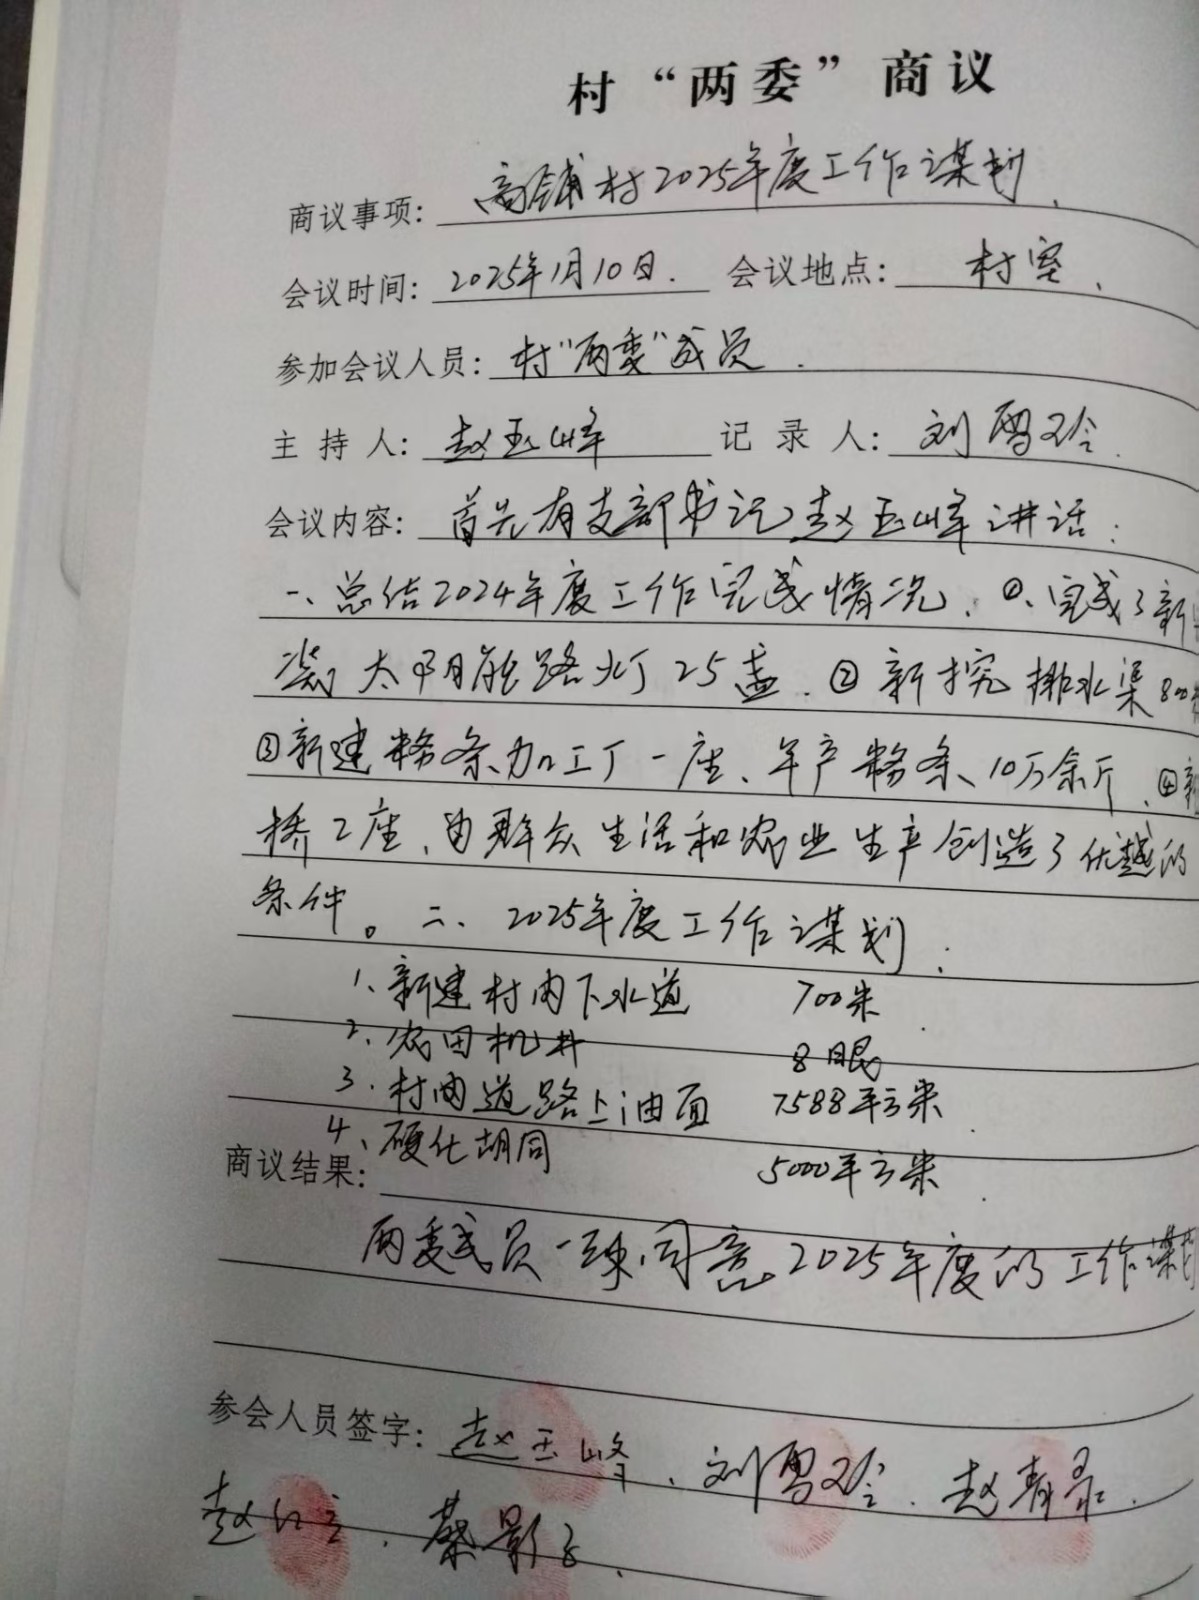 村“两委”商议
商议事项：高铺村2025年度工作谋划．
会议时间：2025年1月10日．会议地点：村室．
参加会议人员：村“两委”成员．
主持人：赵玉峰 记录人：刘雪玲．
会议内容：首先有支部书记赵玉峰讲话：
一、总结2024年度工作完成情况．①、完成了新
装太阳能路灯25盏．②新挖排水渠800
③新建粉条加工厂一座、年产粉条10万余斤．④新
桥2座、为群众生活和农业生产创造了优越的
条件。二、2025年度工作谋划：
1、新建村内下水道 700米．
2．农田机井 8眼
3．村内道路上油面 7588平方米．
4、硬化胡同 5000平方米．
商议结果：
两委成员一致同意2025年度的工作谋划
参会人员签字：赵玉峰、刘雪玲．赵青录．
赵红立．蔡影子．